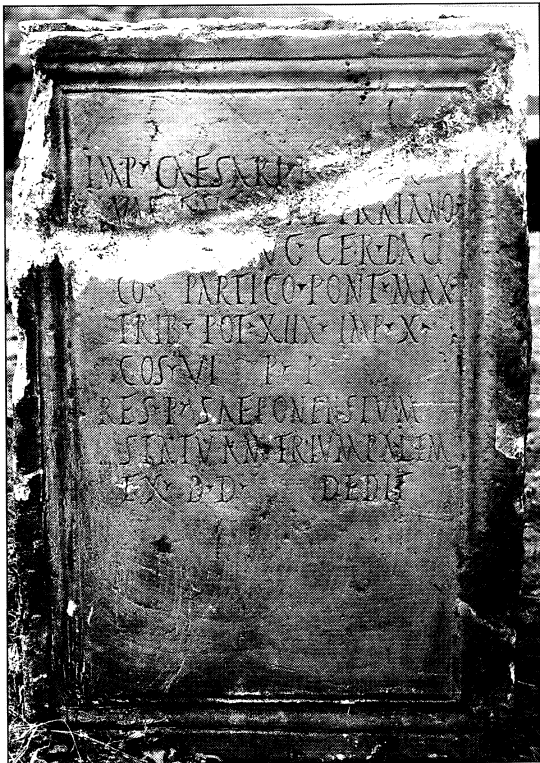 IMP CAESARI
TRAIANO
VG GER DACI
CO PARTICO PONT MAX
TRIB POT XIIX IMP X
COS VI P P
RES P SAEPONENSIVM
STATVAM TRIVMPALEM
EX D D DEDIT